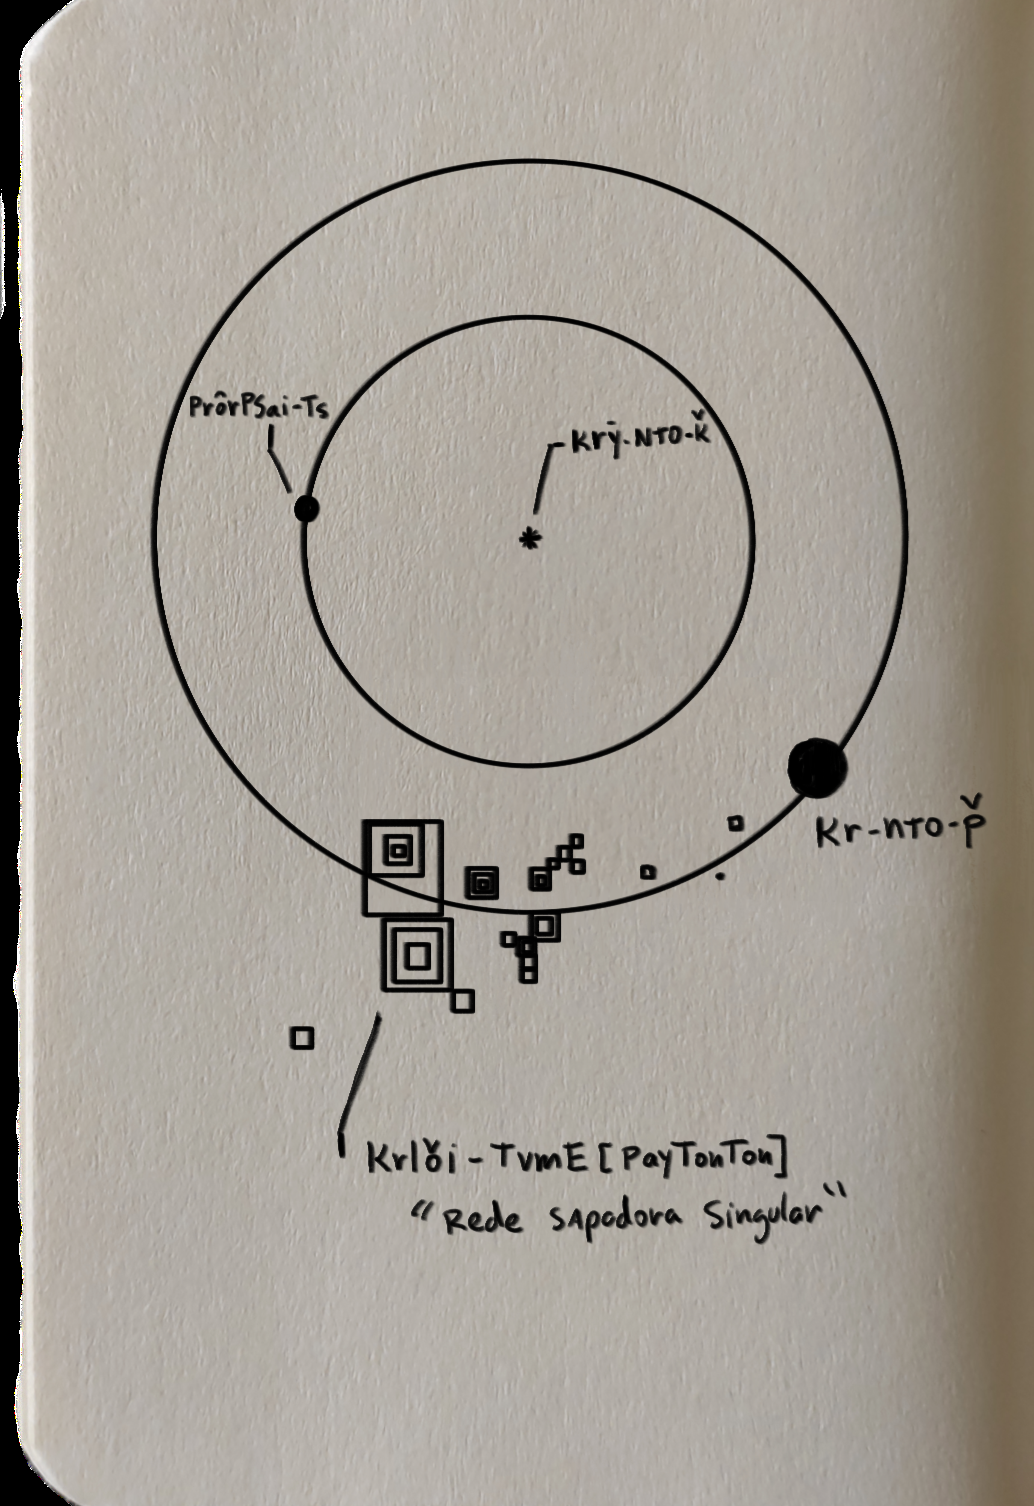 PrôrPSai-Ts
Krȳ-NTO-ǩ
Kr-nTO-p̌
Krlǒi-TvmE [PayTonTon]
"Rede SApadora Singular"